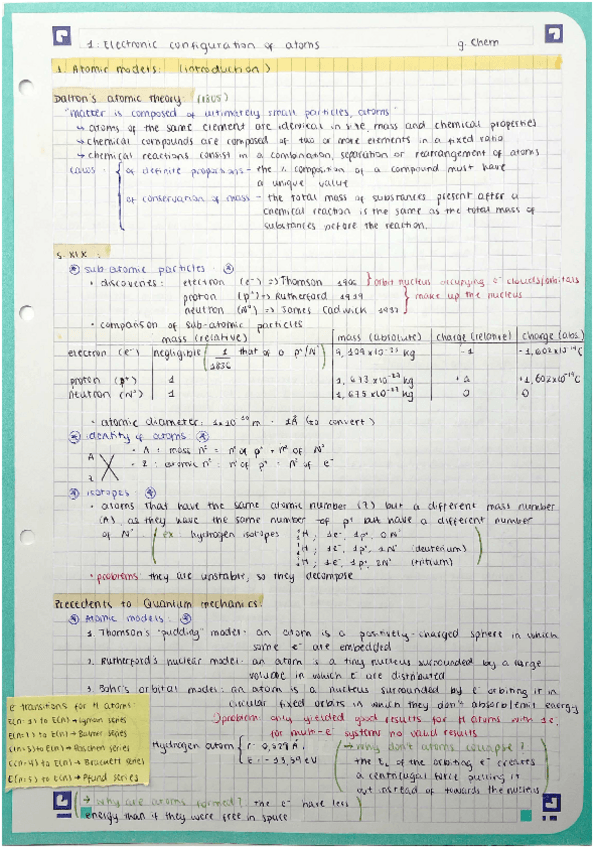 1. Electronic configuration of atoms g. Chem
1. Atomic models: (introduction)
Dalton's atomic theory: (1805)
"matter is composed of ultimately small particles, atoms"
↳ atoms of the same element are identical in size, mass and chemical properties
→ chemical compounds are composed of two or more elements in a fixed ratio
↳ chemical reactions consist in a combination, separation or rearrangement of atoms
Laws of definite proportions - the % composition of a compound must have
a unique value
of conservation of mass - the total mass of substances present after a
chemical reaction is the same as the total mass of
substances before the reaction.
S. XIX :
sub atomic particles
• discoveries: electron (e⁻) => Thomson 1906 orbit nucleus occupying e⁻ clouds/orbitals
proton (p⁺) => Rutherford 1919 make up the nucleus
neutron (N°) => James Cadwick 1932
• comparison of sub-atomic particles
mass (relative) mass (absolute) charge (relative) charge (abs)
electron (e⁻) negligible (1/1836 that of a p⁺/N°) kg -1
proton (p⁺) 1 kg
neutron (N°) 1 kg 0 0
• atomic diameter: 1 Å (to convert)
identity of atoms
A • A: mass nº = nº of p⁺ + nº of N°
X
Z • Z: atomic nº: nº of p⁺ = nº of e⁻
isotopes
• atoms that have the same atomic number (Z) but a different mass number
(A), as they have the same number of p⁺ but have a different number
of N° (ex: hydrogen isotopes H; 1e⁻, 1p⁺, 0N°
H; 1e⁻, 1p⁺, 1N° (deuterium)
H; 1e⁻, 1p⁺, 2N° (tritium)
• problems: they are unstable, so they decompose
Precedents to Quantum mechanics:
Atomic models:
1. Thomson's "pudding" model - an atom is a positively-charged sphere in which
some e⁻ are embedded
2. Rutherford's nuclear model - an atom is a tiny nucleus surrounded by a large
volume in which e⁻ are distributed
3. Bohr's orbital model: an atom is a nucleus surrounded by e⁻ orbiting it in
circular fixed orbits in which they don't absorb/emit energy
problem: only yielded good results for H atoms with 1e⁻,
for multi-e⁻ systems no valid results
e⁻ transitions for H atoms:
to E(n) → Lyman series
to E(n) → Balmer series
to E(n) → Paschen series
to E(n) → Brackett series
to E(n) → Pfund series
Hydrogen atom r = 0,529 Å
E = -13,59 eV
→ Why don't atoms collapse?
the of the orbiting e⁻ creates
a centrifugal force pulling it
out instead of towards the nucleus
(→ Why are atoms formed? the e⁻ have less
energy than if they were free in space